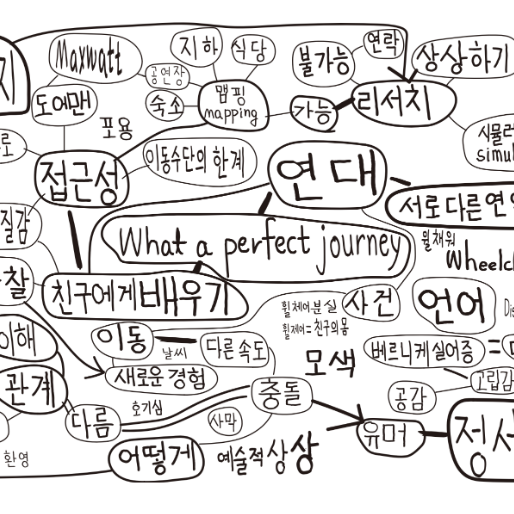 지
Maxwatt
지하
식당
연락
불가능
상상하기
공연장
도어맨
숙소
맵핑
mapping
가능
리서치
포용
시뮬러
simul
로
접근성
이동수단의 한계
연대
서로 다른 연
질감
What a perfect journey
휠채워
Wheelch
찰
친구에게 배우기
휠체어 분실
사건
언어
Dis
휠체어=친구의 몸
이해
이동
날씨
다른 속도
모색
베르니케 실어증
=
새로운 경험
고립감
관계
호기심
충돌
공감
다름
사막
유머
정서
환영
어떻게
예술적 상상